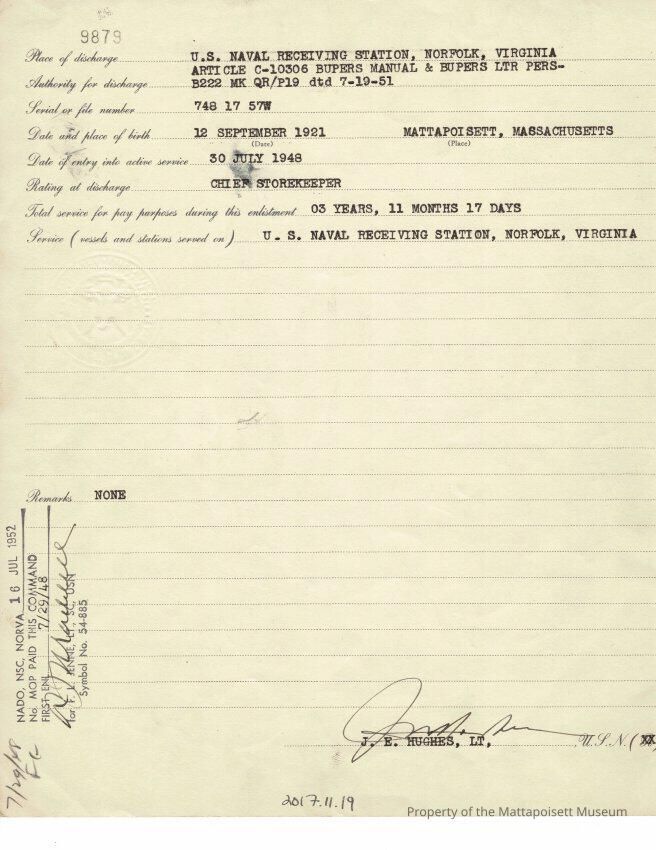 9879
Place of discharge U.S. NAVAL RECEIVING STATION, NORFOLK, VIRGINIA
ARTICLE C-10306 BUPERS MANUAL & BUPERS LTR PERS-
Authority for discharge B222 MK QR/P19 dtd 7-19-51
Serial or file number 748 17 57W
Date and place of birth 12 SEPTEMBER 1921 MATTAPOISETT, MASSACHUSETTS
(Date) (Place)
Date of entry into active service 30 JULY 1948
Rating at discharge CHIEF STOREKEEPER
Total service for pay purposes during this enlistment 03 YEARS, 11 MONTHS 17 DAYS
Service (vessels and stations served on) U. S. NAVAL RECEIVING STATION, NORFOLK, VIRGINIA
Remarks NONE
NADO, NSC, NORVA 16 JUL 1952
No. MOP PAID THIS COMMAND
FIRST ENL 7/29/48
LT, SC, USN
Symbol No. 54-885
7/29/48
J. E. HUGHES, LT, U.S.N. (XX
2017.11.19
Property of the Mattapoisett Museum